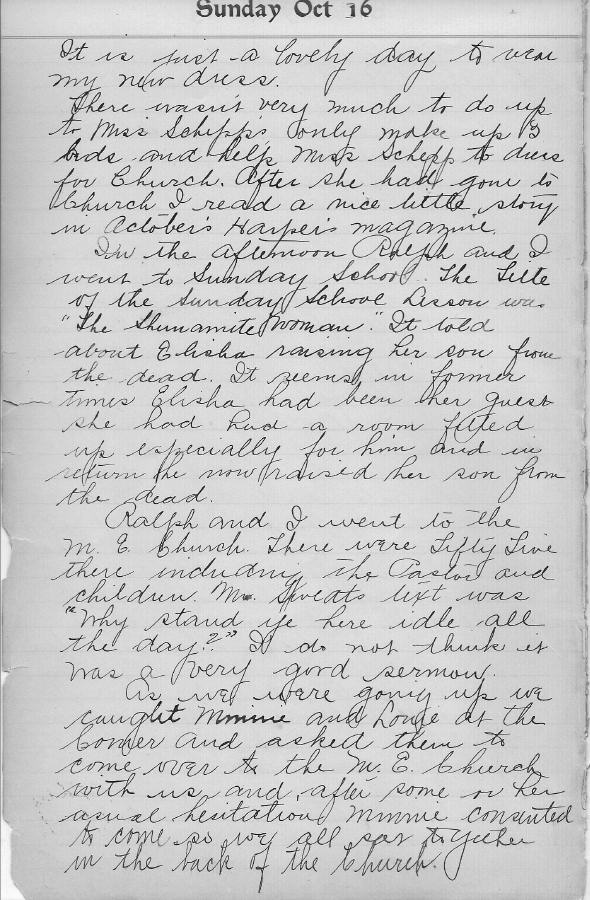 Sunday Oct 16
It is just a lovely day to wear
my new dress.
There wasn't very much to do up
to Miss Schepp's only make up 3
beds and help Miss Schepp to dress
for Church. After she had gone to
Church I read a nice little story
in October's Harper's magazine.
In the afternoon Ralph and I
went to Sunday School. The Title
of the Sunday School Lesson was
"The Shunamite Woman." It told
about Elisha raising her son from
the dead. It seems in former
times Elisha had been her guest
she had had a room fitted
up especially for him and in
return he now raised her son from
the dead.
Ralph and I went to the
M. E. Church. There were Fifty Five
there including the Pastor and
children. Mr. Sweats text was
"Why stand ye here idle all
the day?" I do not think it
was a very good sermon.
As we were going up we
caught Minnie and at the
Corner and asked them to
come over to the M. E. Church
with us and, after some or her
usual hesitation Minnie consented
to come so we all sat together
in the back of the Church.